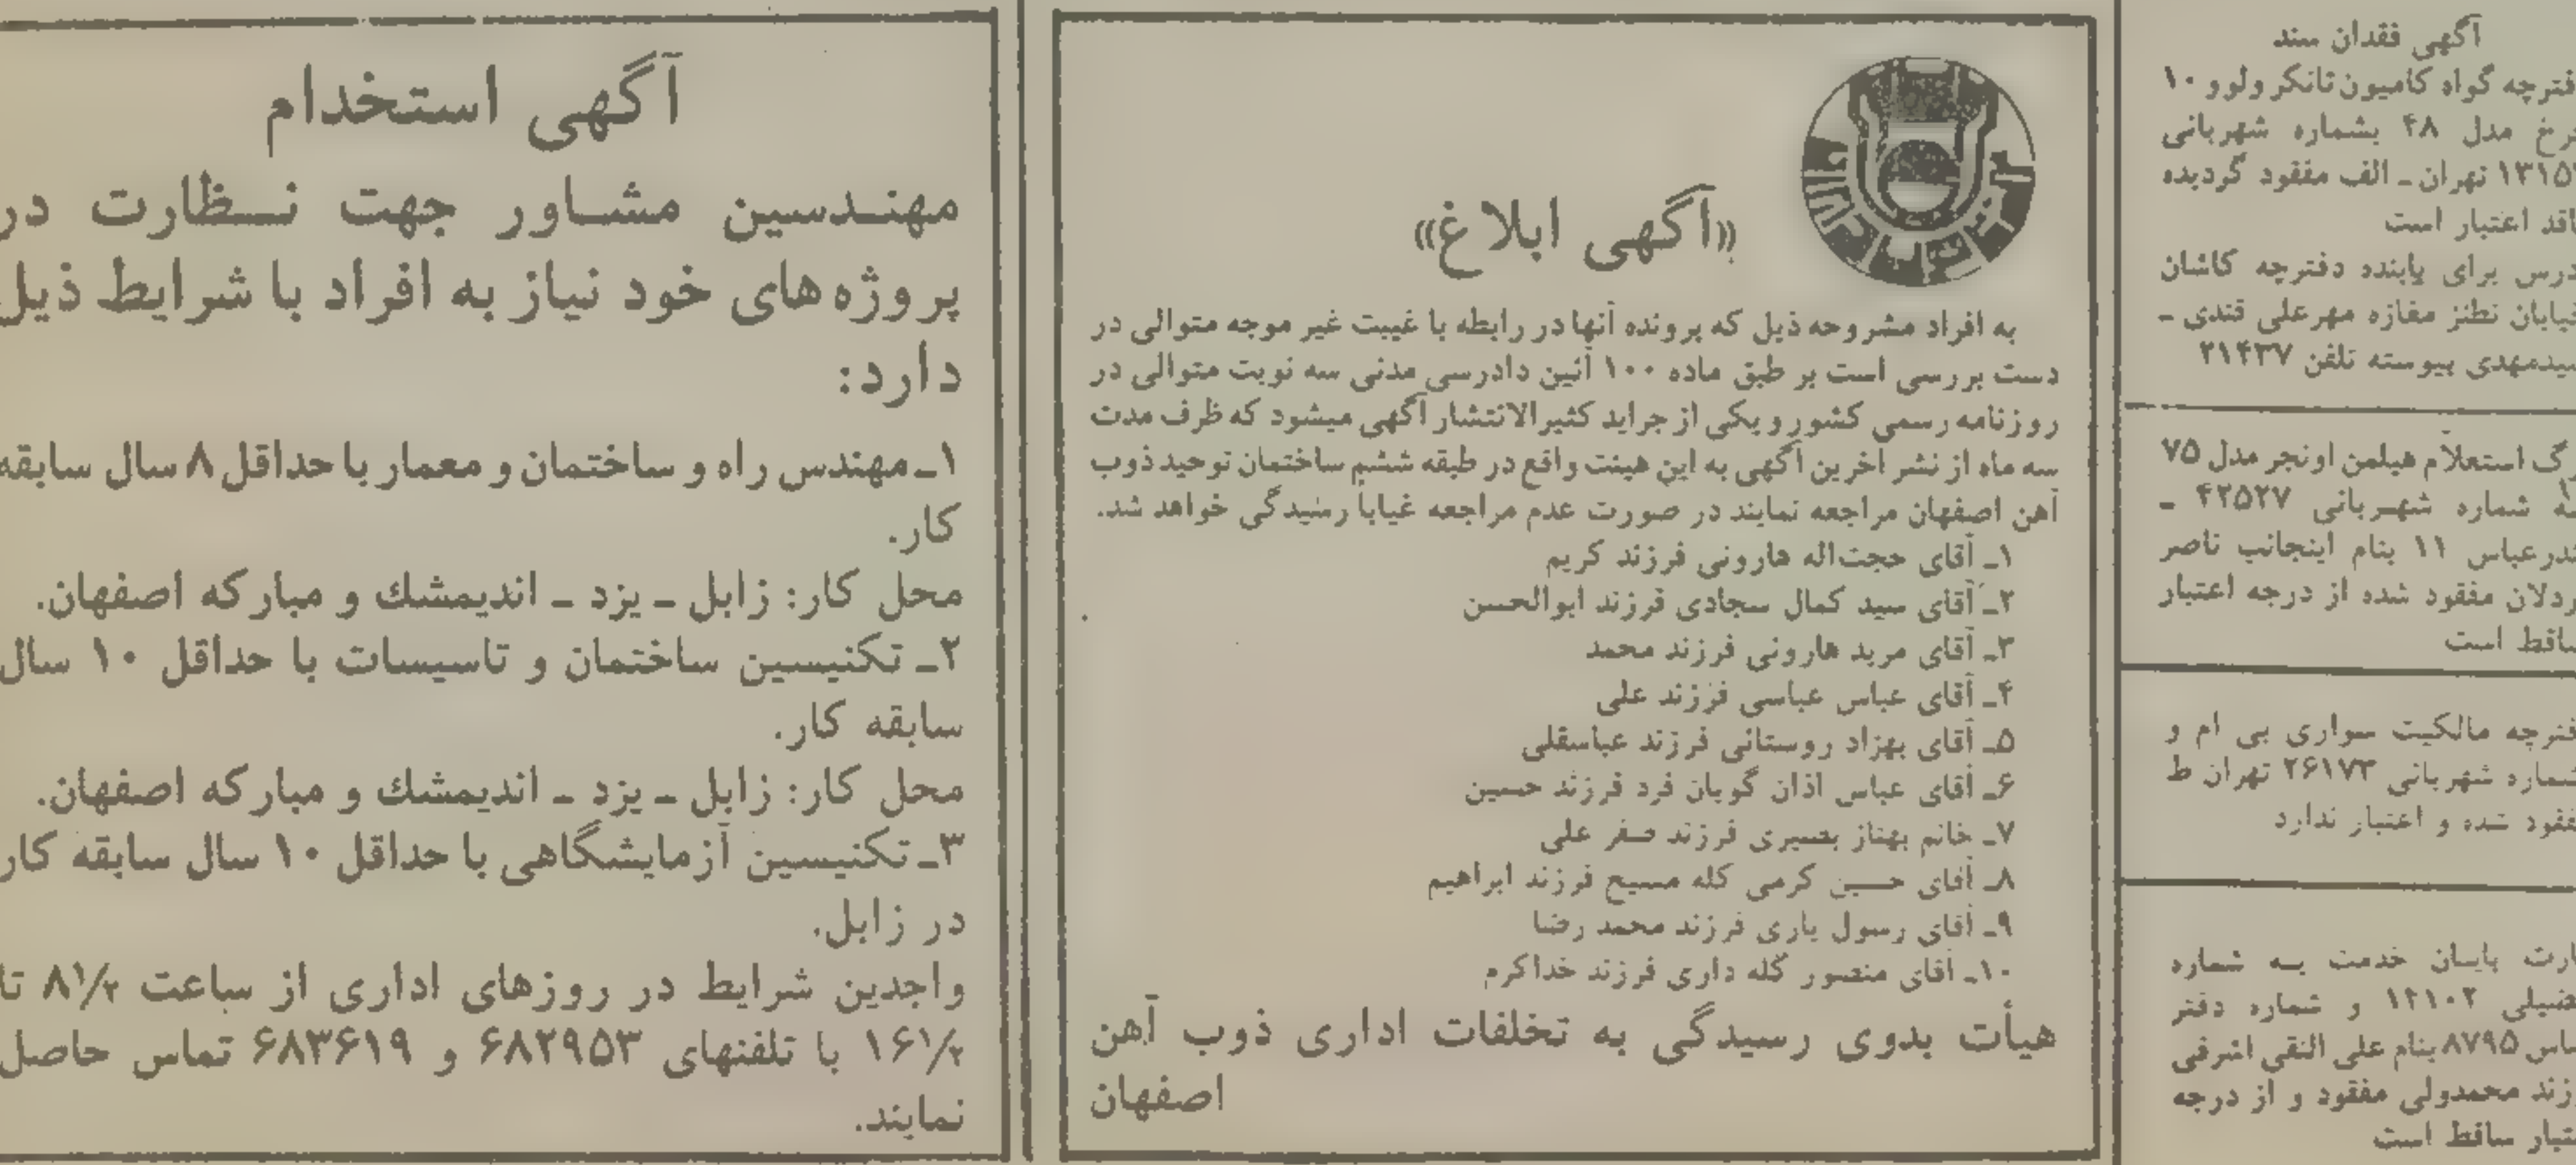 آگهی فقدان سند
فترچه گواه کامیون تانکر ولوو ۱۰
چرخ مدل ۴۸ بشماره شهربانی
تهران ـ الف مفقود گردیده
اعتبار است
برای یابنده دفترچه کاشان
خیابان نطنز مغازه مهرعلی قندی ـ
سیدمهدی پیوسته تلفن ۲۱۴۳۷
استعلام هیلمن اونجر مدل ۷۵
شماره شهربانی ۴۲۵۲۷ ـ
بندرعباس ۱۱ بنام اینجانب ناصر
مفقود شده از درجه اعتبار
ساقط است
فترچه مالکیت سواری بی ام و
شماره شهربانی ۲۶۱۷۳ تهران ط
مفقود شده و اعتبار ندارد
پایان خدمت به شماره
۱۲۱۰۲ و شماره دفتر
۸۷۹۵ بنام علی النقی اشرفی
محمدولی مفقود و از درجه
ساقط است
«آگهی ابلاغ»
به افراد مشروحه ذیل که پرونده آنها در رابطه با غیبت غیر موجه متوالی در
دست بررسی است بر طبق ماده ۱۰۰ آئین دادرسی مدنی سه نوبت متوالی در
روزنامه رسمی کشور و یکی از جراید کثیرالانتشار آگهی میشود که ظرف مدت
سه ماه از نشر اخرین آگهی به این هیئت واقع در طبقه ششم ساختمان توحید ذوب
آهن اصفهان مراجعه نمایند در صورت عدم مراجعه غیاباً رسیدگی خواهد شد.
۱ـ آقای حجت‌اله هارونی فرزند کریم
۲ـ آقای سید کمال سجادی فرزند ابوالحسن
۳ـ آقای مرید هارونی فرزند محمد
۴ـ آقای عباس عباسی فرزند علی
۵ـ آقای بهزاد روستائی فرزند عباسقلی
۶ـ آقای عباس اذان گویان فرد فرزند حسین
۷ـ خانم بهناز بصیری فرزند صفر علی
۸ـ آقای حسین کرمی کله مسیح فرزند ابراهیم
۹ـ آقای رسول یاری فرزند محمد رضا
۱۰ـ آقای منصور گله داری فرزند خداکرم
هیأت بدوی رسیدگی به تخلفات اداری ذوب آهن
اصفهان
آگهی استخدام
مهندسین مشاور جهت نظارت در
پروژه های خود نیاز به افراد با شرایط ذیل
دارد:
۱ـ مهندس راه و ساختمان و معمار با حداقل ۸ سال سابقه
کار.
محل کار: زابل ـ یزد ـ اندیمشك و مبارکه اصفهان.
۲ـ تکنیسین ساختمان و تاسیسات با حداقل ۱۰ سال
سابقه کار.
محل کار: زابل ـ یزد ـ اندیمشك و مبارکه اصفهان.
۳ـ تکنیسین آزمایشگاهی با حداقل ۱۰ سال سابقه کار
در زابل.
واجدین شرایط در روزهای اداری از ساعت ۸۱/۲ تا
۱۶۱/۲ با تلفنهای ۶۸۲۹۵۳ و ۶۸۳۶۱۹ تماس حاصل
نمایند.